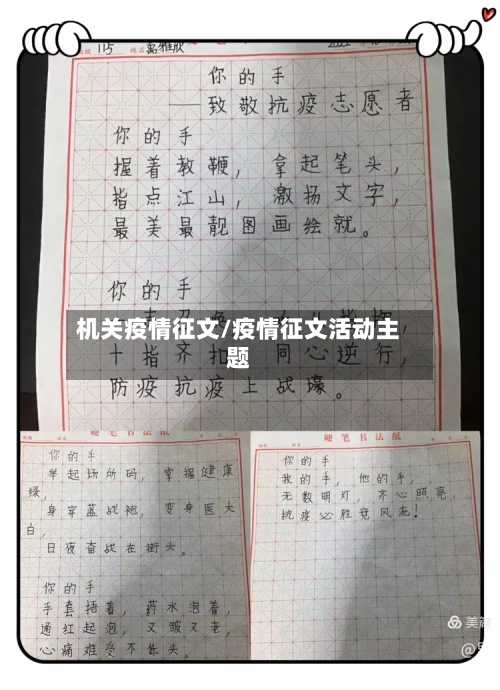 115 姓名
你的手
——致敬抗疫志愿者
你的手
握着教鞭，拿起笔头，
指点江山，激扬文字，
最美最靓图画绘就。
你的手
机关疫情征文/疫情征文活动主
题
十指齐扣，同心逆行，
防疫抗疫上战壕。
硬笔书法纸
你的手
举起场所码，掌握健康
绿，
身穿蓝战袍，变身医大
白，
日夜奋战在街头。
你的手
手套捂着，药水泡着，
通红起泡，又皱又老，
心痛难受不低头。
硬笔书法纸
你的手
我的手，他的手，
无数明灯，齐心照亮，
抗疫必胜竞风流！
美篇